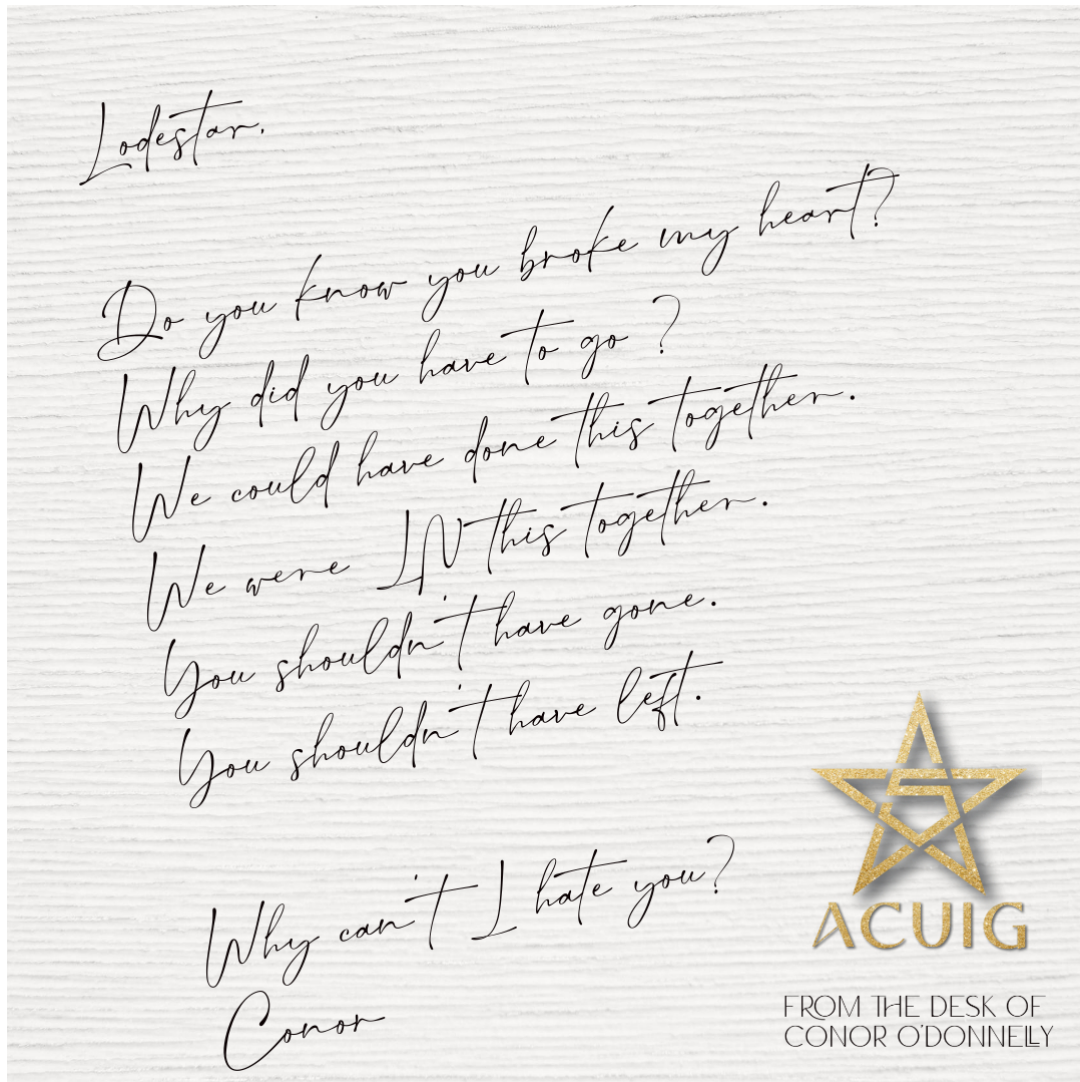 Lodestar,
Do you know you broke my heart?
Why did you have to go ?
We could have done this together.
We were IN this together.
You shouldn't have gone.
You shouldn't have left.
Why can't I hate you?
Conor
5
ACUIG
FROM THE DESK OF
CONOR O'DONNELLY